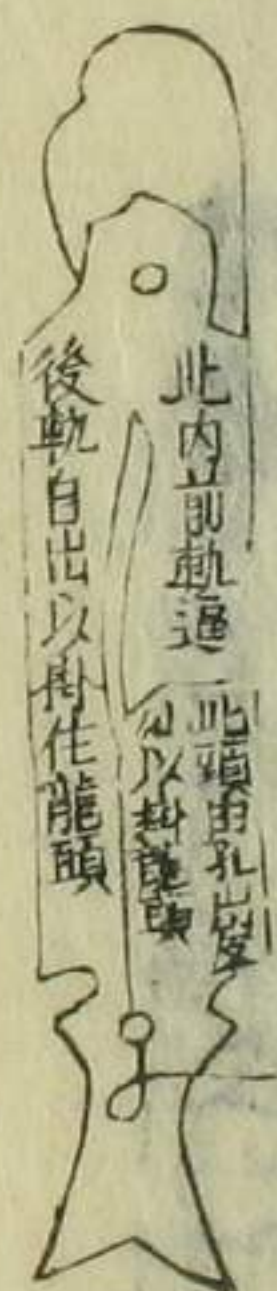 此内前軌逼
此頭由孔出壓
以掛龍頭
後軌自出以掛住龍頭